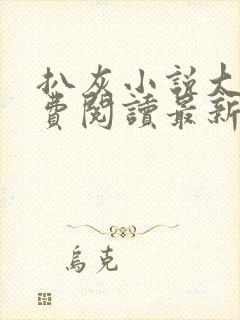 扒灰小説大
費閱讀最新
烏克